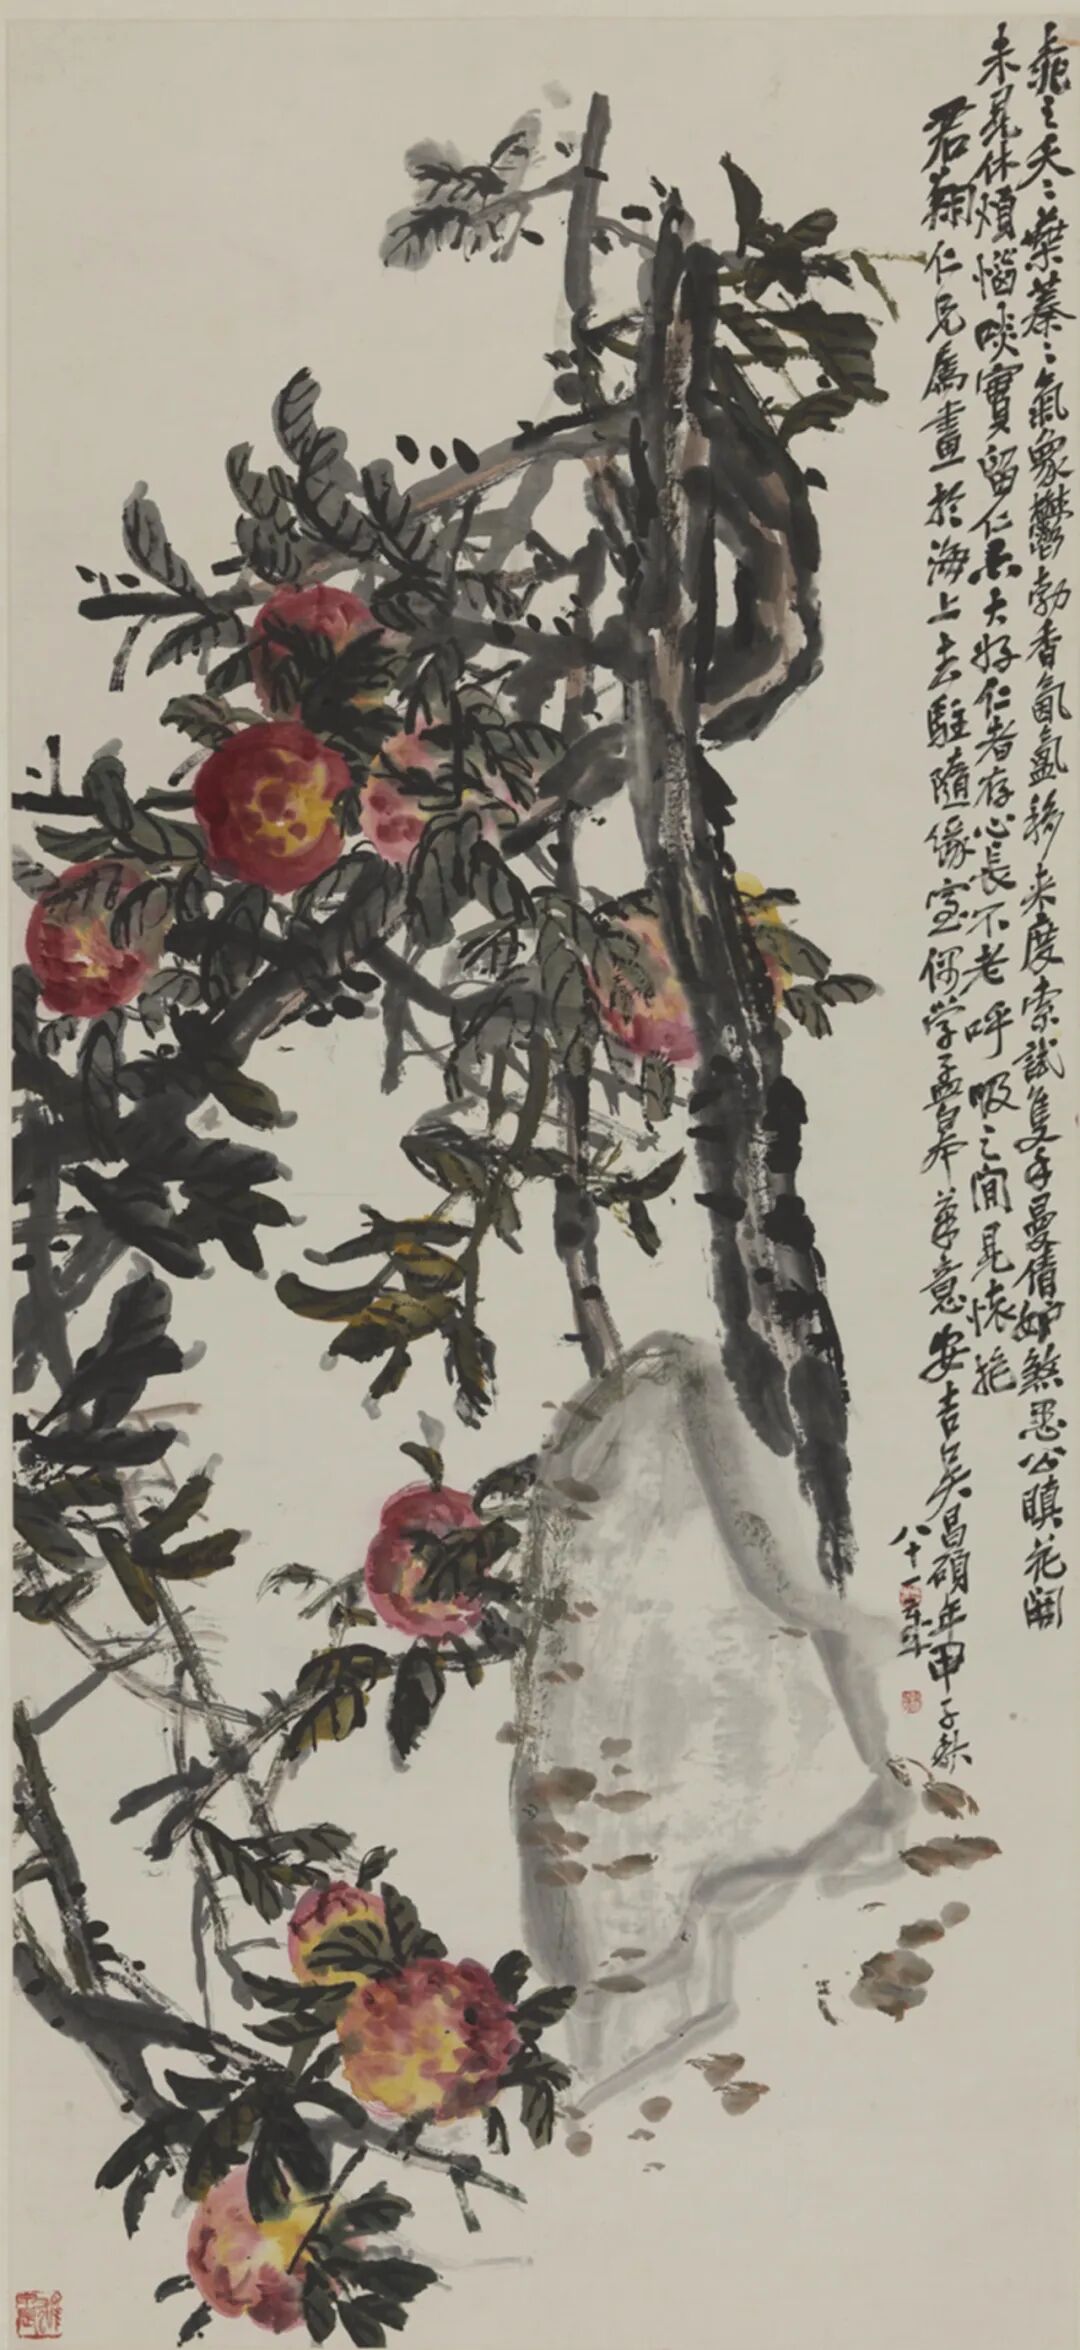 桃之夭〻葉蓁〻氣象鬱勃香氤氳移来度索試隻手曼倩妒煞愚公瞋花開
未見休煩惱啖實留仁亦大好仁者存心長不老呼吸之間見懷抱
君翔仁兄屬畫於海上去駐隨緣室偶學孟皋筆意安吉吴昌碩年甲子秋
八十一